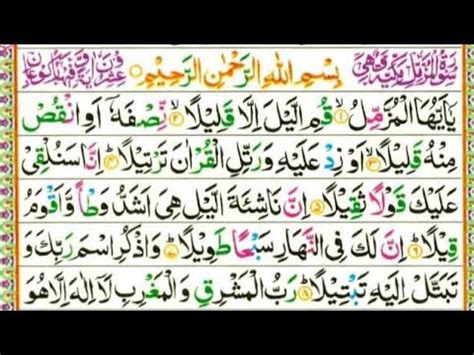 سُوْرَةُ الْمُزَّمِّلِ مَكِّيَّةٌ وَّهِيَ بِسْمِ اللهِ الرَّحْمٰنِ الرَّحِيْمِ عِشْرُوْنَ اٰيَةً وَّفِيْهَا رُكُوْعَانِ
يٰۤاَيُّهَا الْمُزَّمِّلُ ۙ﴿۱﴾ قُمِ الَّيْلَ اِلَّا قَلِيْلًا ۙ﴿۲﴾ نِّصْفَهٗۤ اَوِ انْقُصْ
مِنْهُ قَلِيْلًا ۙ﴿۳﴾ اَوْ زِدْ عَلَيْهِ وَرَتِّلِ الْقُرْاٰنَ تَرْتِيْلًا ؕ﴿۴﴾ اِنَّا سَنُلْقِيْ
عَلَيْكَ قَوْلًا ثَقِيْلًا ﴿۵﴾ اِنَّ نَاشِئَةَ الَّيْلِ هِيَ اَشَدُّ وَطْاً وَّاَقْوَمُ
قِيْلًا ؕ﴿۶﴾ اِنَّ لَكَ فِي النَّهَارِ سَبْحًا طَوِيْلًا ؕ﴿۷﴾ وَاذْكُرِ اسْمَ رَبِّكَ وَ
تَبَتَّلْ اِلَيْهِ تَبْتِيْلًا ؕ﴿۸﴾ رَبُّ الْمَشْرِقِ وَالْمَغْرِبِ لَاۤ اِلٰهَ اِلَّا هُوَ